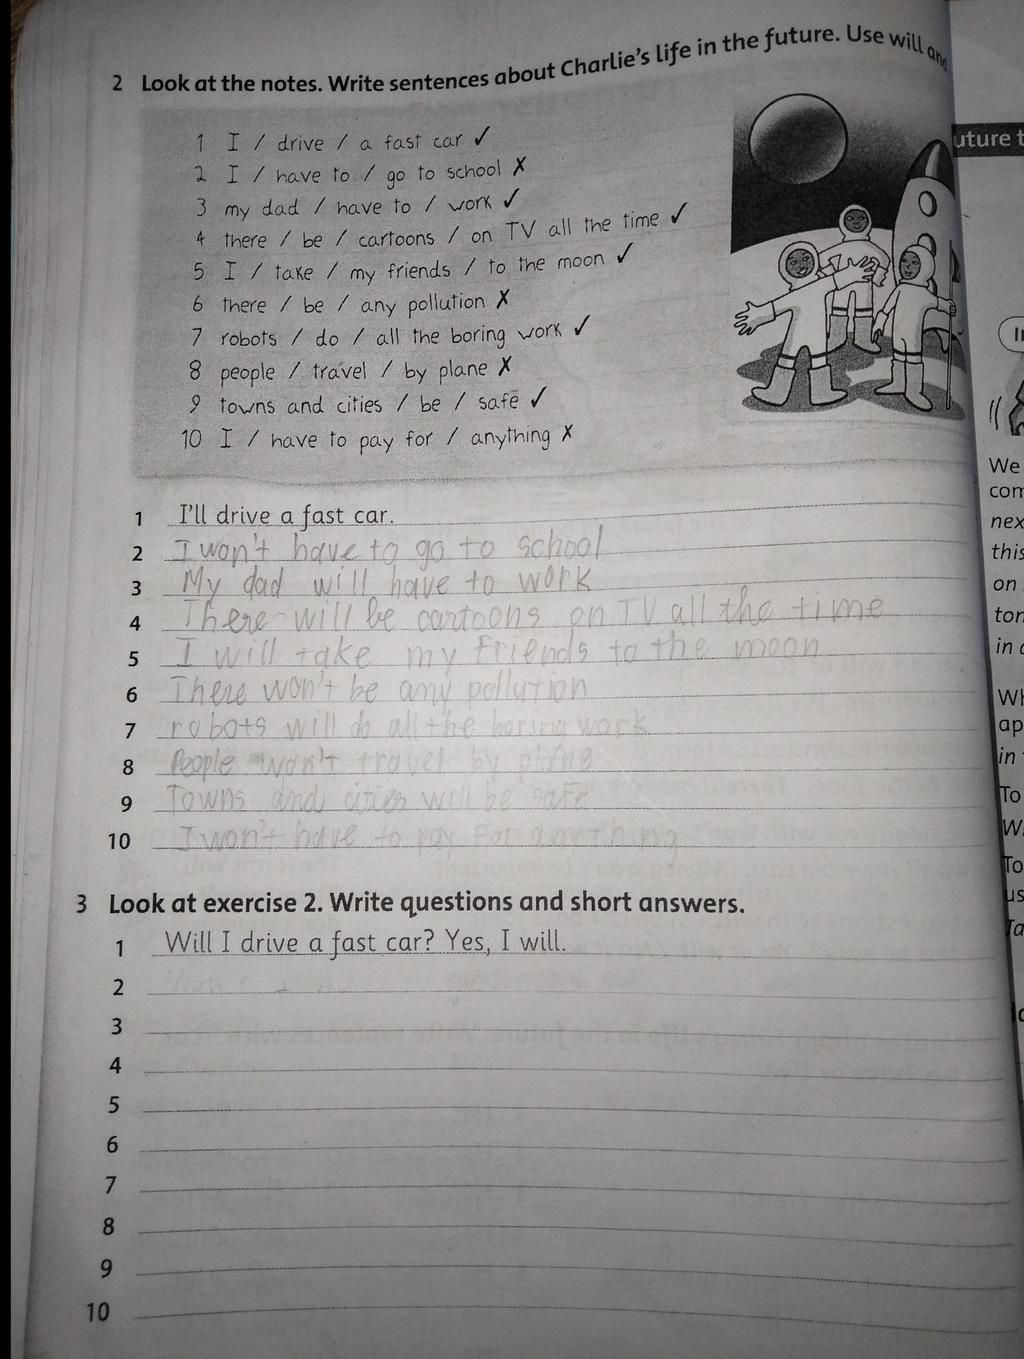 2 Look at the notes. Write sentences about Charlie's life in the future. Use will an
1 I / drive / a fast car ✓
2 I / have to / go to school ✗
3 my dad / have to / work ✓
4 there / be / cartoons / on TV all the time ✓
5 I / take / my friends / to the moon ✓
6 there / be / any pollution ✗
7 robots / do / all the boring work ✓
8 people / travel / by plane ✗
9 towns and cities / be / safe ✓
10 I / have to pay for / anything ✗
1 I'll drive a fast car.
2 I won't have to go to school
3 My dad will have to work
4 There will be cartoons on TV all the time
5 I will take my friends to the moon
6 There won't be any pollution
7 robots will do all the boring work
8 People won't travel by plane
9 Towns and cities will be safe
10 I won't have to pay for anything
3 Look at exercise 2. Write questions and short answers.
1 Will I drive a fast car? Yes, I will.
2
3
4
5
6
7
8
9
10
uture t
We
com
nex
this
on
ton
in
Wh
ap
in
To
W
To
us
Ta